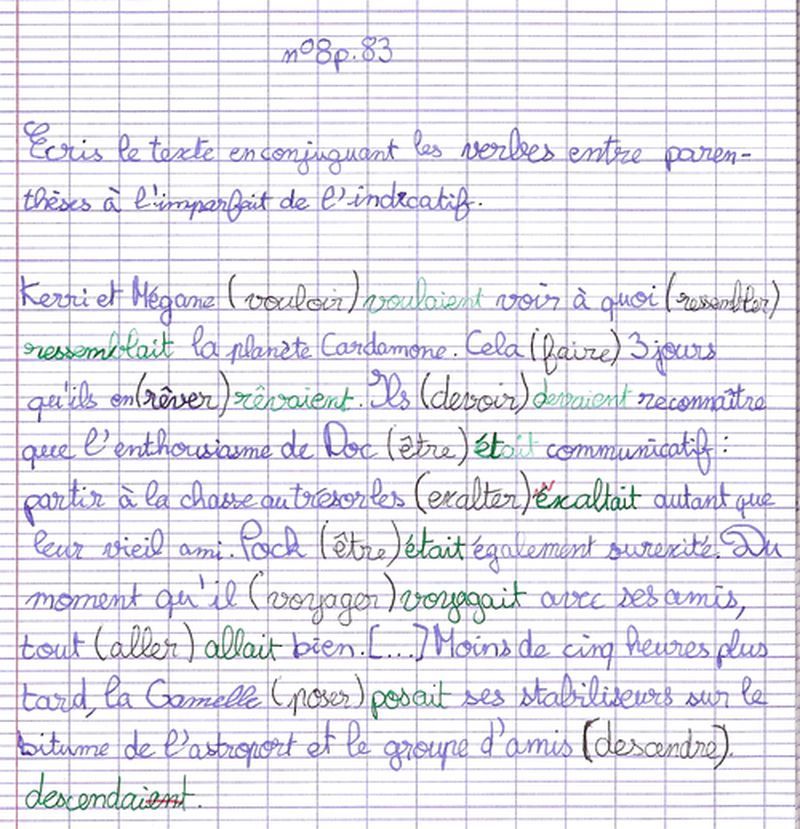 n°8p.83
Ecris le texte en conjuguant les verbes entre paren-
thèses à l'imparfait de l'indicatif.
Kerri et Mégane (vouloir) voulaient voir à quoi (ressembler)
ressemblait la planète Cardamone. Cela (faire) 3 jours
qu'ils en (rêver) rêvaient. Ils (devoir) devaient reconnaître
que l'enthousiasme de Doc (être) était communicatif :
partir à la chasse au trésor les (exalter) éxaltait autant que
leur vieil ami. Pock (être) était également surexité. Du
moment qu'il (voyager) voyagait avec ses amis,
tout (aller) allait bien. [...] Moins de cinq heures plus
tard, la Gamelle (poser) posait ses stabiliseurs sur le
bitume de l'astroport et le groupe d'amis (descendre).
descendaient.